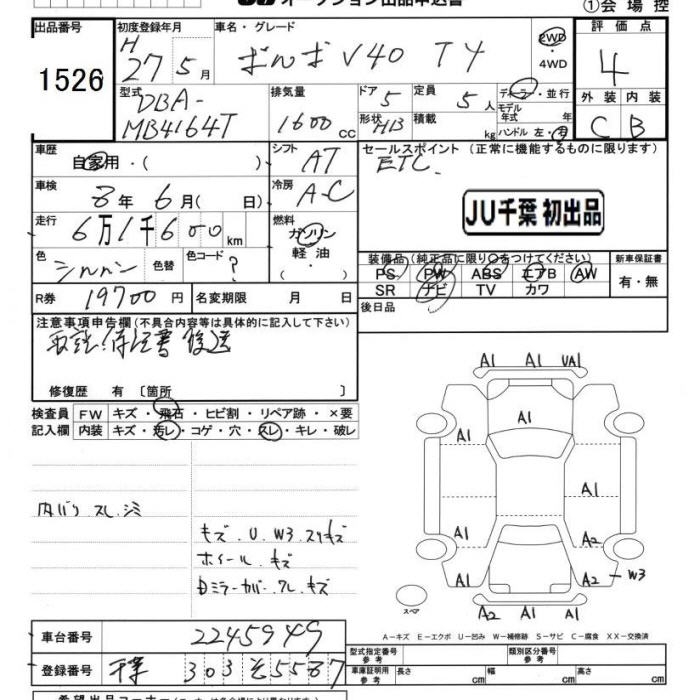 オークション出品申込書
①会場控
出品番号 1526
初度登録年月 H 27年 5月
車名・グレード ボルボV40 T4
2WD・4WD
評価点 4
外装 C 内装 B
型式 DBA-MB4164T
排気量 1600 CC
ドア 5 形状 HB
定員 5人 積載 kg
ディーラー・並行
モデル年式 年
ハンドル 左・右
車歴 自家用・( )
シフト AT
セールスポイント(正常に機能するものに限ります)
ETC
車検 8年 6月( 日)
冷房 A-C
JU千葉 初出品
走行 6万1千600km
燃料 ガソリン 軽油 ・
色 シルバー 色替 色コード ?
装備品(純正品に限り○をつけてください)
PS PW ABS エアB AW
SR ナビ TV カワ
新車保証書 有・無
R券 19700円 名変期限 月 日
後日品
注意事項申告欄(不具合内容等は具体的に記入して下さい)
取説.保証書 後送
修復歴 有〔箇所 〕
検査員 FW キズ・飛石・ヒビ割・リペア跡・×要
記入欄 内装 キズ・汚レ・コゲ・穴・スレ・キレ・破レ
A1 A1 UA1
A1
A1
A1 A1
A1 A2
A1 A2-W3
スペア
A2 A1 A1
内バリ スレ.シミ
キズ U W3 スリキズ
ホイール キズ
ミラーカバー スレ キズ
A-キズ E-エクボ U-凹み W-補修跡 S-サビ C-腐食 XX-交換済
車台番号 2245949
登録番号 千葉 303 そ 5587
型式指定番号 参考 類別区分番号 参考
車庫証明用 参考 長さ cm 幅 cm 高さ cm